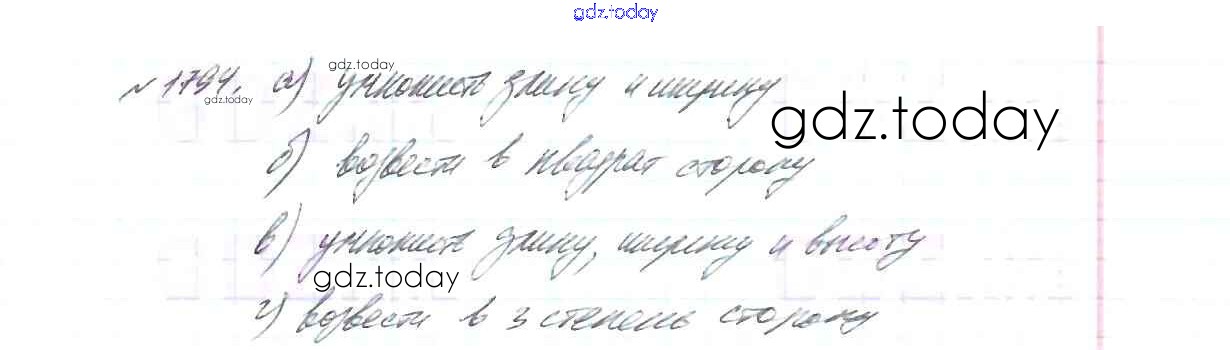 gdz.today
gdz.today
№1794. а) умножить длину и ширину
gdz.today
gdz.today
б) возвести в квадрат сторону
в) умножить длину, ширину и высоту
gdz.today
г) возвести в 3 степень сторону